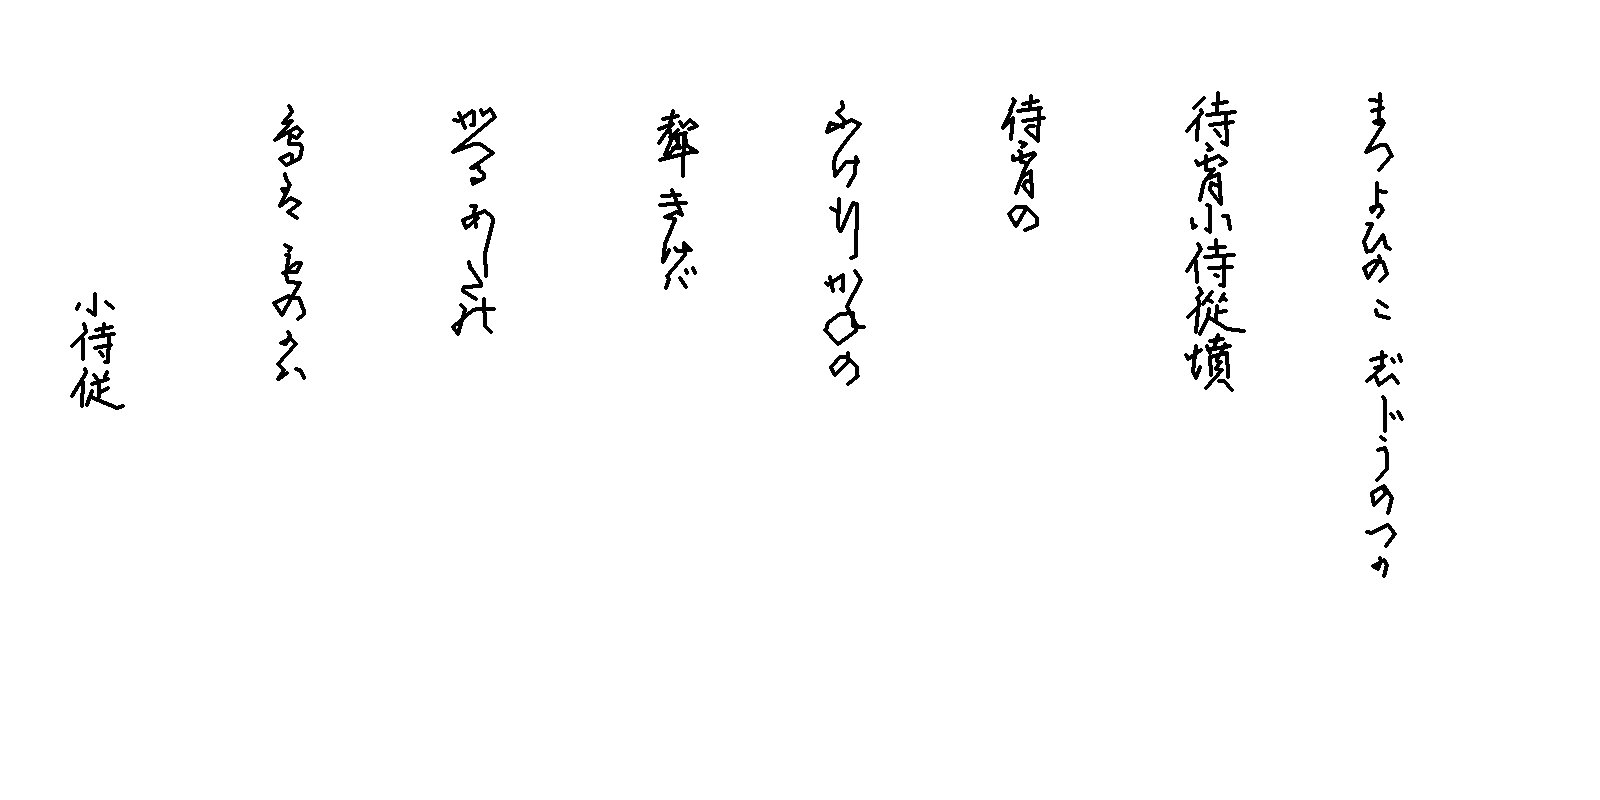 まつよひのこ じじうのつか
待宵小侍從墳
待宵の
ふけ行かねの
聲きけば
かへるあしたの
鳥はものかは
小侍従